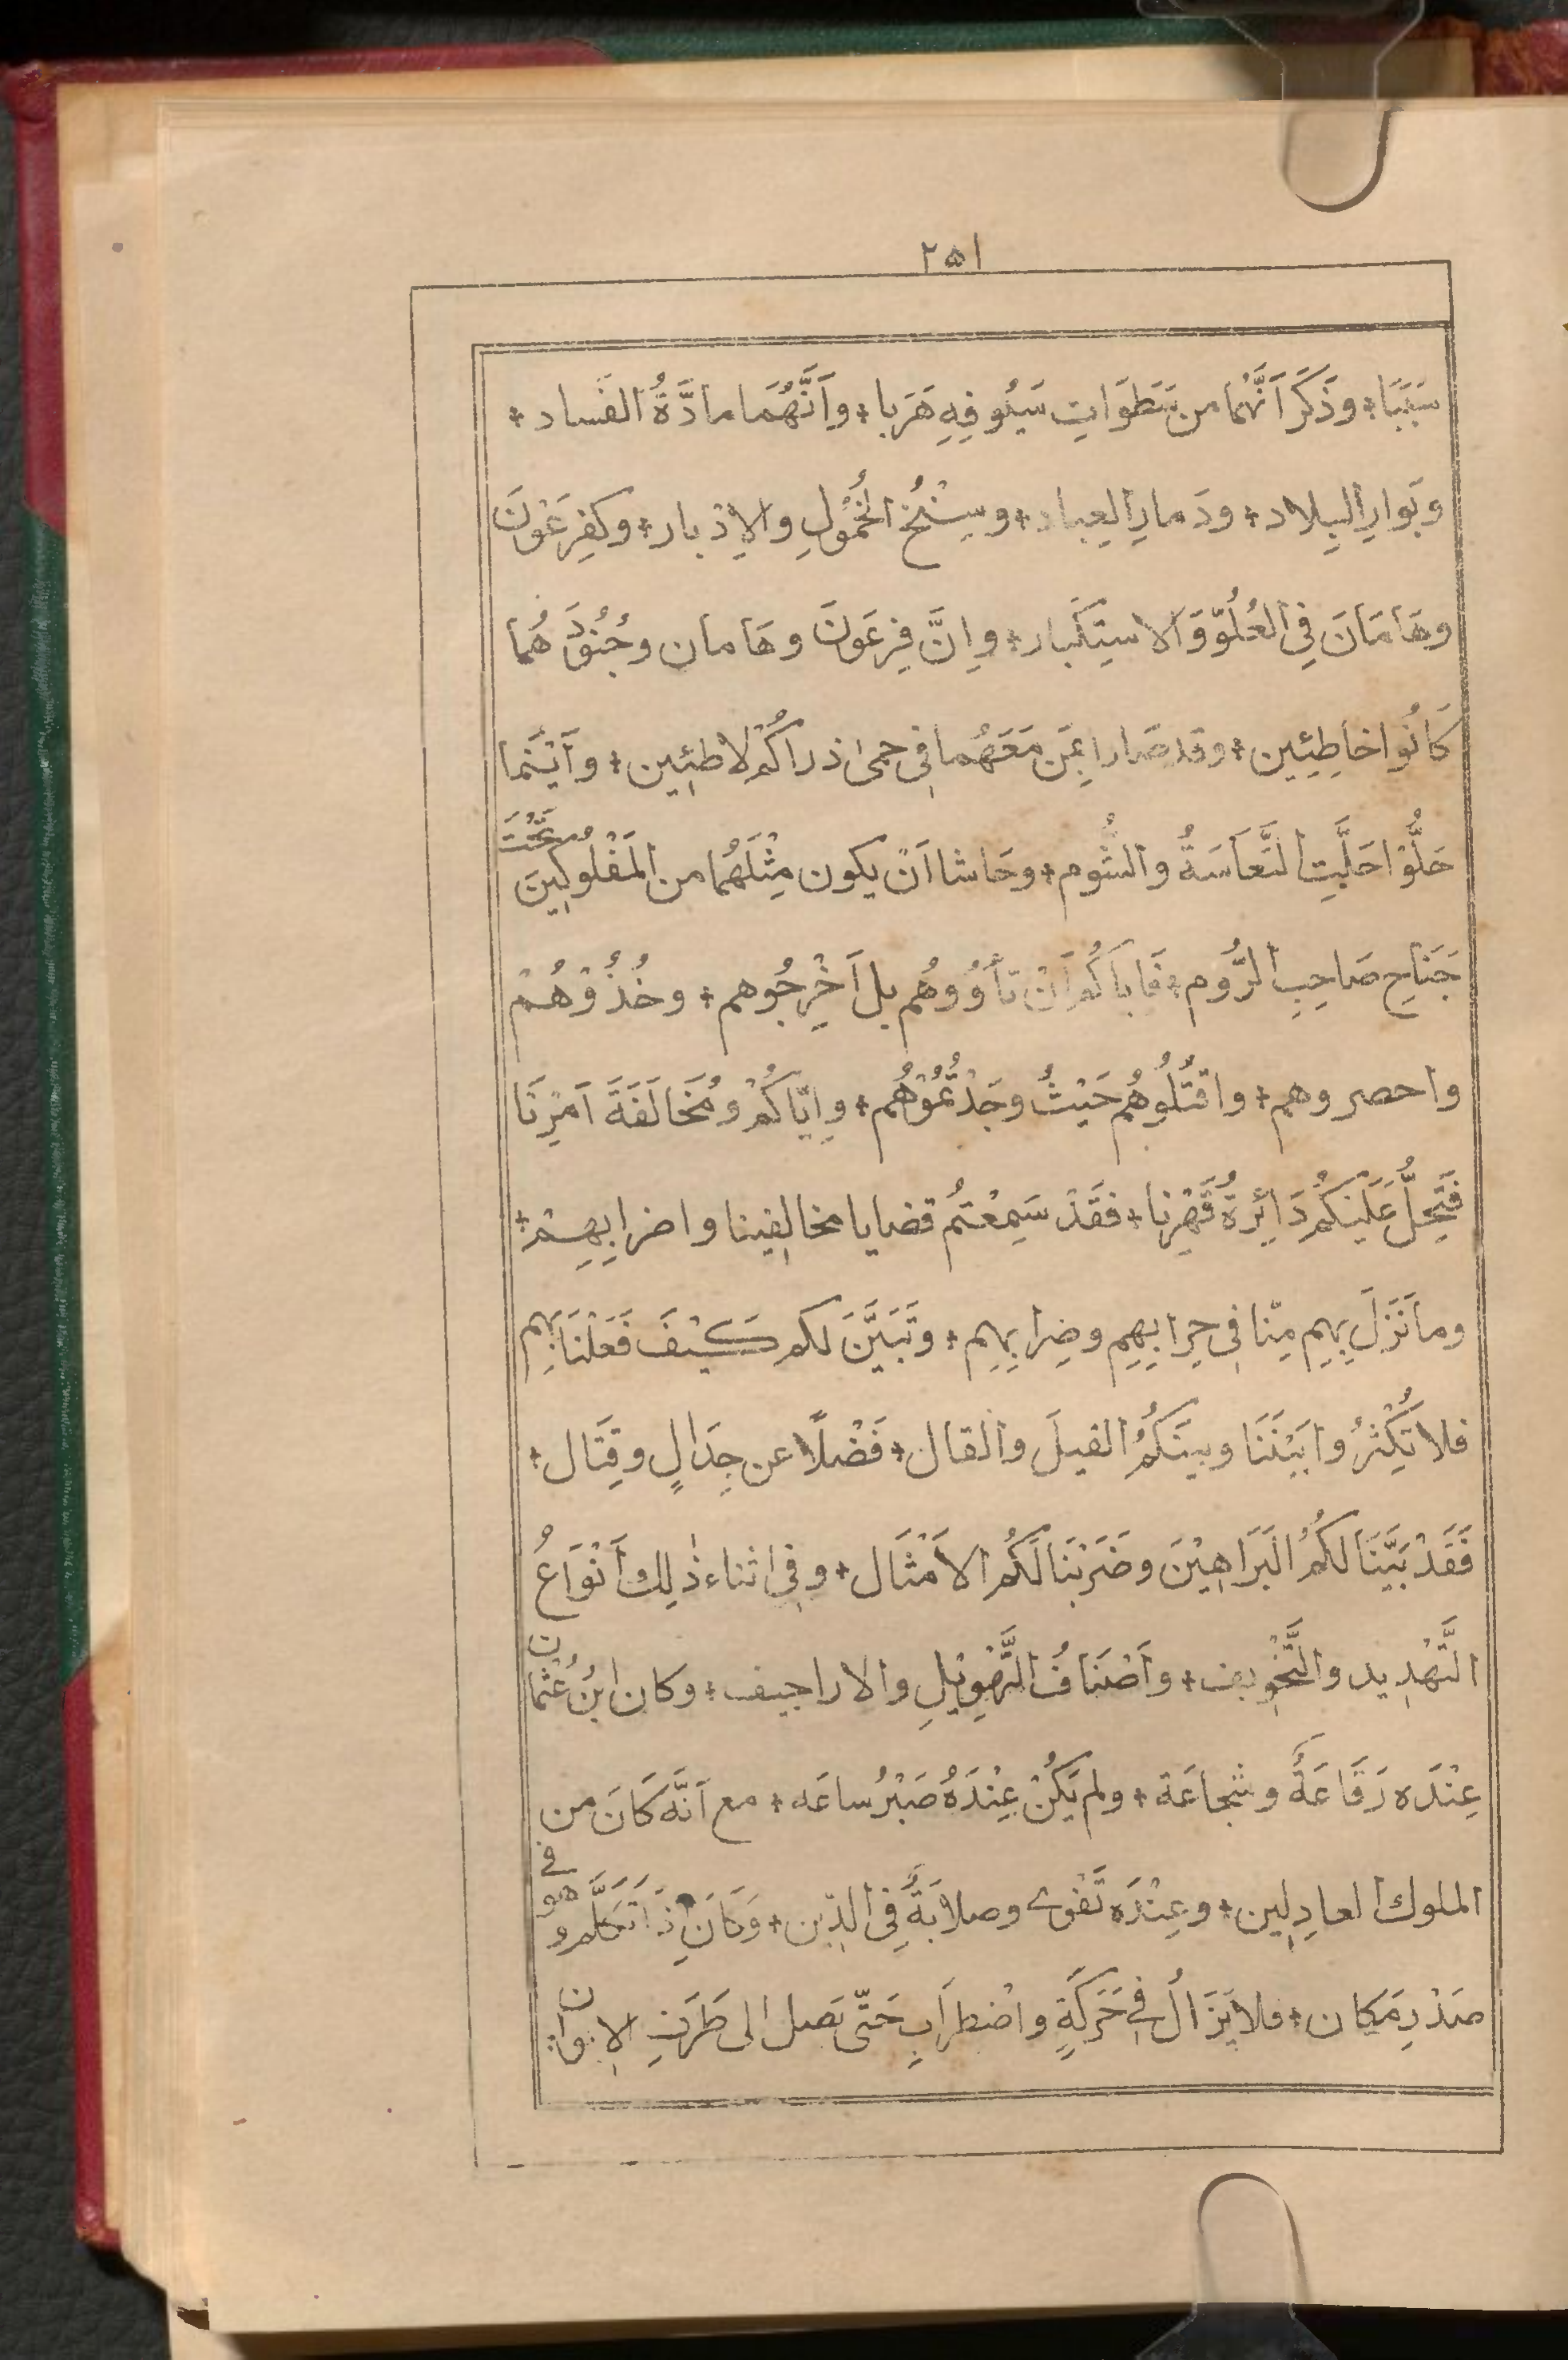 ٢٥١
سَبَبًا + وذَكَرَ اَنَّهُما من سَطَوَاتِ سَيُوفِهِ هَرَبا + واَنَّهُمَا مادَّةُ الفَساد +
وبَوارِ البِلاد + ودَمارِ العِباد + وسِنْخُ الخُمُولِ والاِدْبار + وكَفِرعَوْنَ
وهَامَانَ فِي العُلُوّ وَالاسْتِكبار + واِنَّ فِرعَونَ وهَامان وجُنُودَهُما
كانُوا خاطِئِين + وقد صَارا بِمَن مَعَهُما فِي حِمىٰ ذراكُمْ لاطِئِين + وأَيْنَما
حَلُّوْا حَلَّتِ التَّعَاسَةُ والشُّوم + وحَاشا اَنْ يكون مِثْلَهُما من المَفْلُوكِينَ تَحْتَ
جَنَاحِ صَاحِبِ الرُّوم + فَاياكُم اَنْ تَأوُوهُم بل اَخْرِجُوهم + وخُذُوْهُمْ
واحصروهم + واقتُلُوهُم حَيْثُ وجَدْتُمُوْهُم + واِيّاكُمْ ومُخَالَفَةَ اَمْرِنَا
فَتَحِلَّ عَلَيْكُم دَائِرَةُ قَهْرِنا + فقَدْ سَمِعْتُم قضايا مخالِفِينا واضرابِهِمْ +
وما نَزَلَ بِهِم مِنّا فِي حِرابِهِم وضِرابِهِم + وتَبَيَّنَ لكم كَيْفَ فَعَلْنَا بِهِم
فلا تُكْثِرُوا بَيْنَنَا وبينَكُمُ القيلَ والقال + فَضْلًا عن جِدَالٍ وقِتَال +
فَقَدْ بَيَّنَا لكُمُ البَرَاهِيْنَ وضَرَبْنَا لَكُم الاَمْثَال + وفي اثناءِ ذٰلِك اَنْوَاعُ
التَّهْدِيد والتَّخْوِيف + واَصْنَافُ التَّهْوِيْلِ والاراجيف + وكان ابْنُ عُثْمان
عِنْدَه رَقَاعَةٌ وشجاعَة + ولم يَكُنْ عِنْدَهُ صَبْرُ ساعَه + مع اَنَّه كَانَ من
الملوك العادِلِين + وعِنْدَه تَقْوى وصلابَةٌ فِي الدّين + وَكَانَ اِذَا تَكَلَّمَ وهو في
صَدْرِ مَكان + فلا يَزَالُ فِي حَرَكَةٍ واضْطِرَابٍ حَتّى يَصِل الى طَرَفِ الايوان +